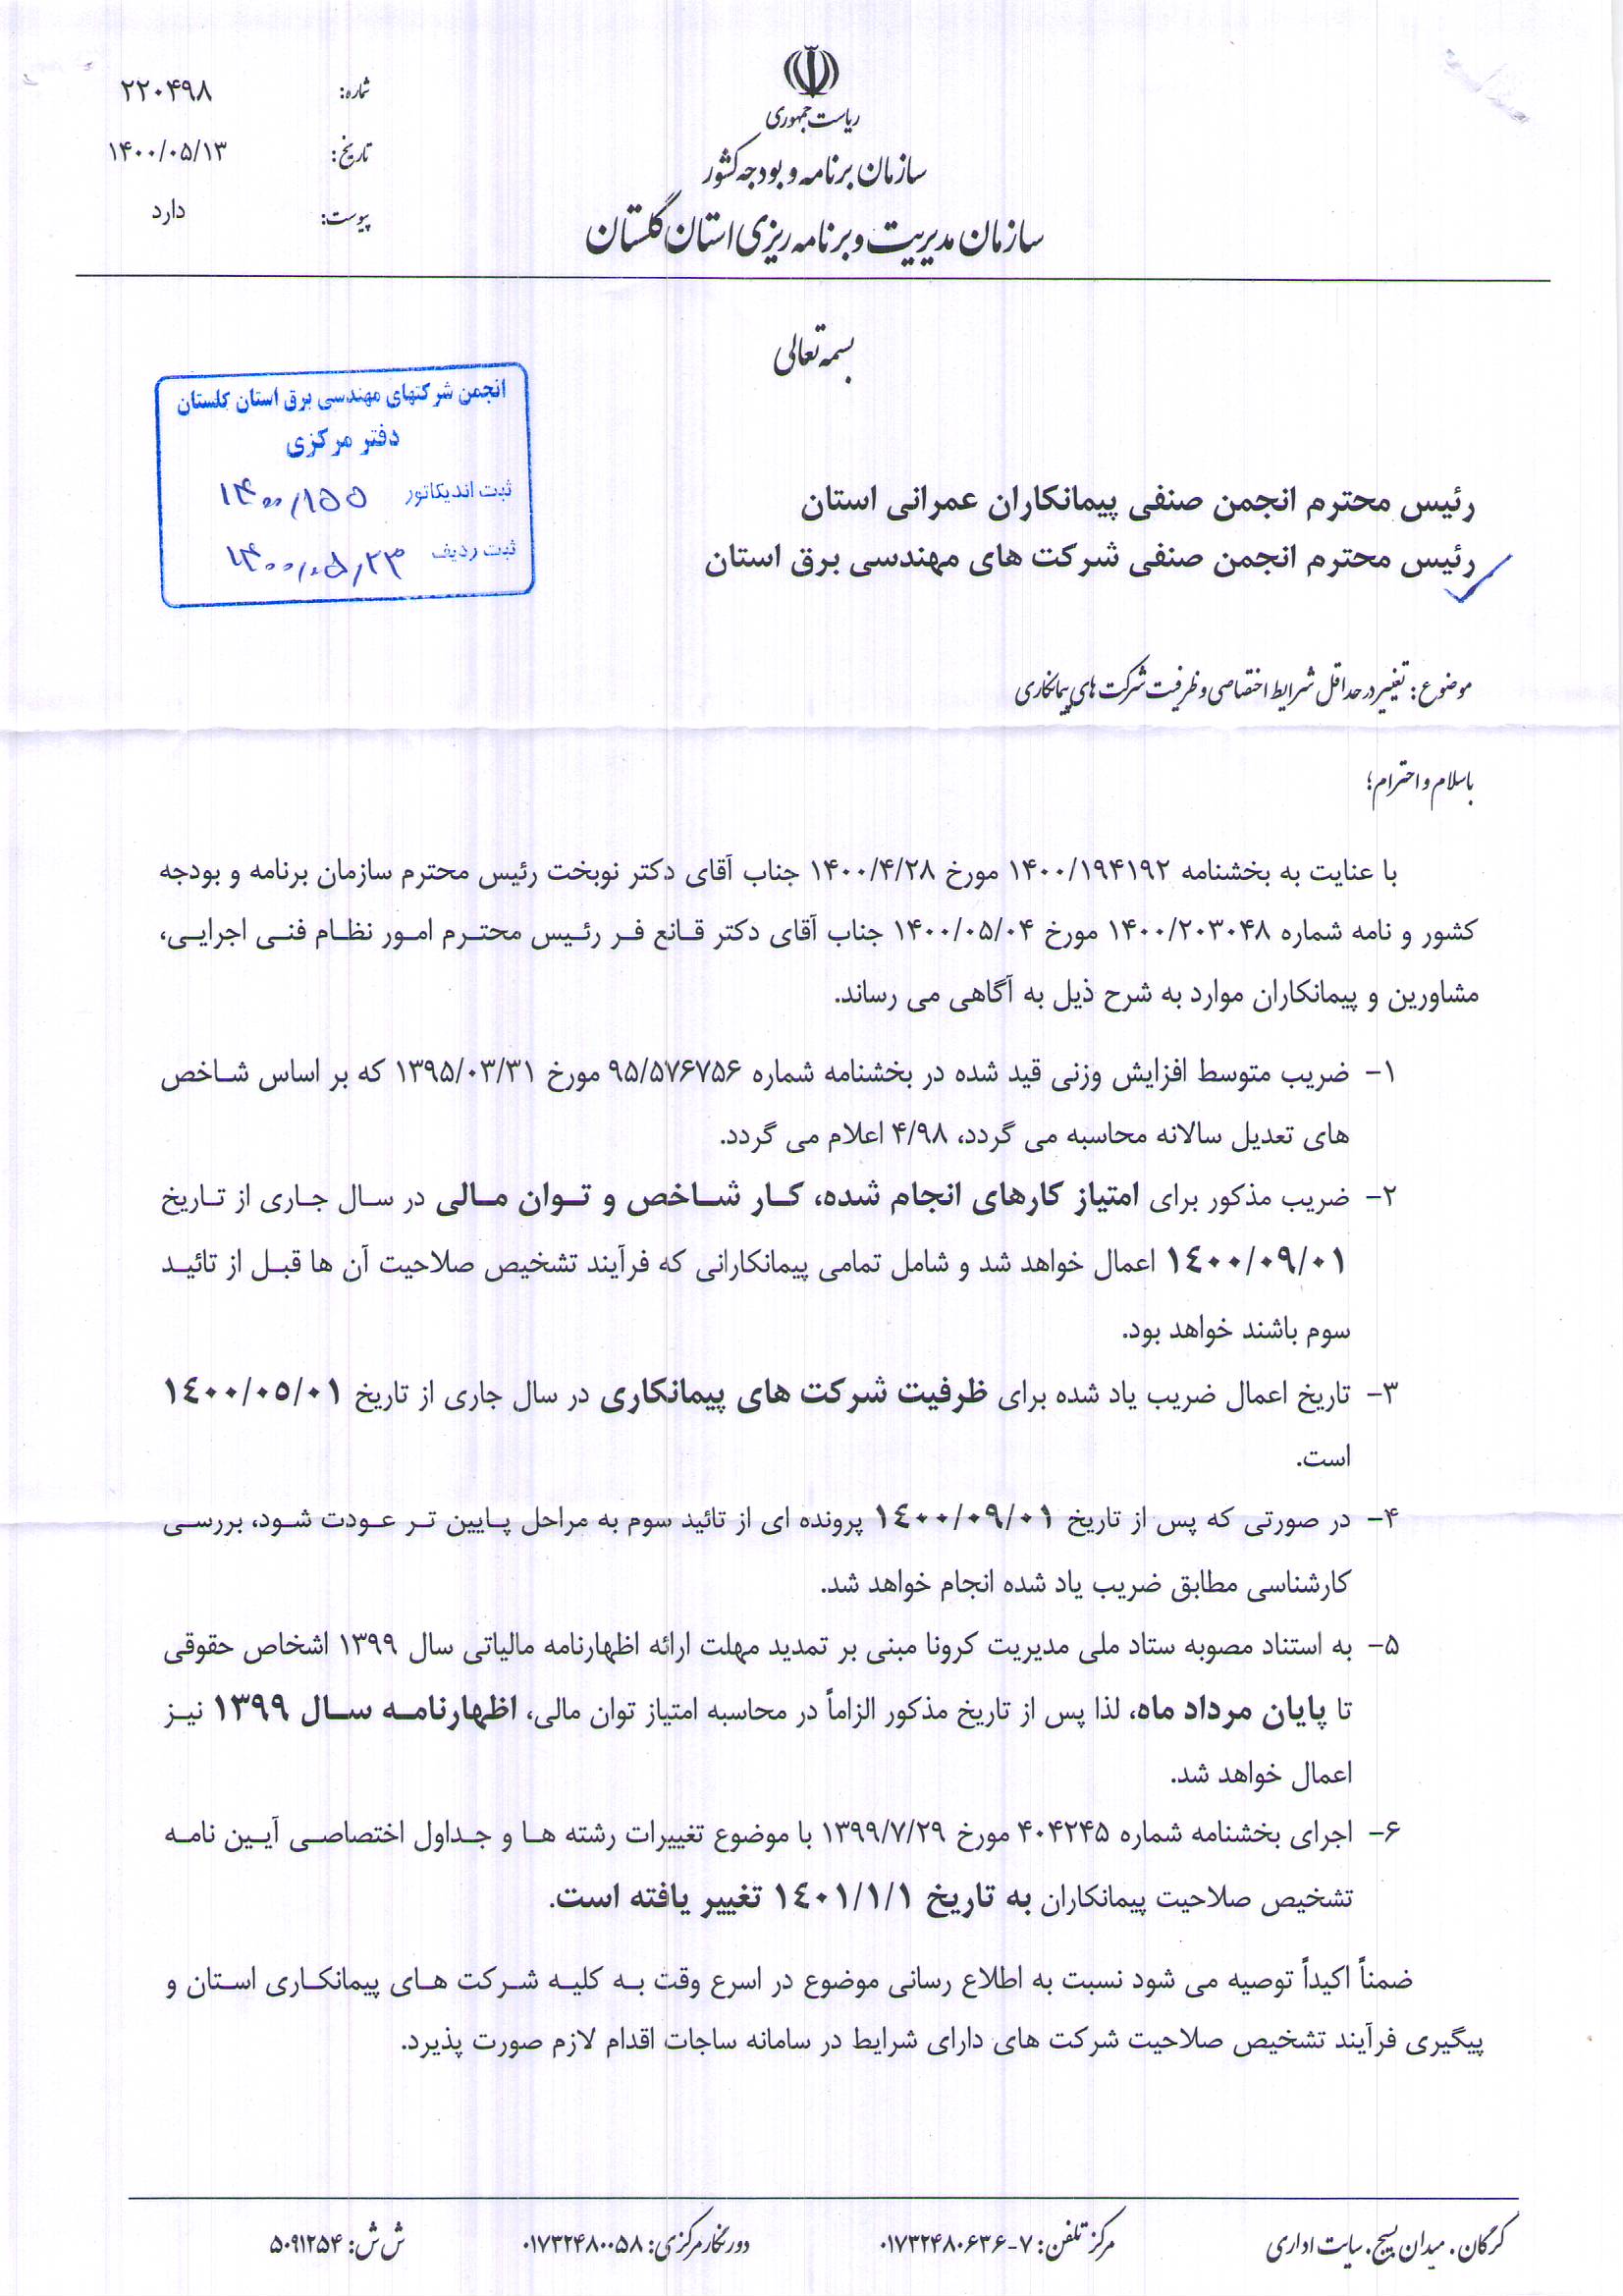 ریاست جمهوری
سازمان برنامه و بودجه کشور
سازمان مدیریت و برنامه ریزی استان گلستان
شماره: ۲۲۰۴۹۸
تاریخ: ۱۴۰۰/۰۵/۱۳
پیوست: دارد
بسمه تعالی
انجمن شرکتهای مهندسی برق استان گلستان
دفتر مرکزی
ثبت اندیکاتور ۱۴۰۰/۱۵۵
ثبت ردیف ۱۴۰۰/۰۵/۲۳
رئیس محترم انجمن صنفی پیمانکاران عمرانی استان
رئیس محترم انجمن صنفی شرکت های مهندسی برق استان
موضوع: تغییر در حداقل شرایط اختصاصی و ظرفیت شرکت های پیمانکاری
باسلام و احترام؛
با عنایت به بخشنامه ۱۴۰۰/۱۹۴۱۹۲ مورخ ۱۴۰۰/۴/۲۸ جناب آقای دکتر نوبخت رئیس محترم سازمان برنامه و بودجه
کشور و نامه شماره ۱۴۰۰/۲۰۳۰۴۸ مورخ ۱۴۰۰/۰۵/۰۴ جناب آقای دکتر قانع فر رئیس محترم امور نظام فنی اجرایی،
مشاورین و پیمانکاران موارد به شرح ذیل به آگاهی می رساند.
۱- ضریب متوسط افزایش وزنی قید شده در بخشنامه شماره ۹۵/۵۷۶۷۵۶ مورخ ۱۳۹۵/۰۳/۳۱ که بر اساس شاخص
های تعدیل سالانه محاسبه می گردد، ۴/۹۸ اعلام می گردد.
۲- ضریب مذکور برای امتیاز کارهای انجام شده، کار شاخص و توان مالی در سال جاری از تاریخ
۱۴۰۰/۰۹/۰۱ اعمال خواهد شد و شامل تمامی پیمانکارانی که فرآیند تشخیص صلاحیت آن ها قبل از تائید
سوم باشند خواهد بود.
۳- تاریخ اعمال ضریب یاد شده برای ظرفیت شرکت های پیمانکاری در سال جاری از تاریخ ۱۴۰۰/۰۵/۰۱
است.
۴- در صورتی که پس از تاریخ ۱۴۰۰/۰۹/۰۱ پرونده ای از تائید سوم به مراحل پایین تر عودت شود، بررسی
کارشناسی مطابق ضریب یاد شده انجام خواهد شد.
۵- به استناد مصوبه ستاد ملی مدیریت کرونا مبنی بر تمدید مهلت ارائه اظهارنامه مالیاتی سال ۱۳۹۹ اشخاص حقوقی
تا پایان مرداد ماه، لذا پس از تاریخ مذکور الزاماً در محاسبه امتیاز توان مالی، اظهارنامه سال ۱۳۹۹ نیز
اعمال خواهد شد.
۶- اجرای بخشنامه شماره ۴۰۴۲۴۵ مورخ ۱۳۹۹/۷/۲۹ با موضوع تغییرات رشته ها و جداول اختصاصی آیین نامه
تشخیص صلاحیت پیمانکاران به تاریخ ۱۴۰۱/۱/۱ تغییر یافته است.
ضمناً اکیداً توصیه می شود نسبت به اطلاع رسانی موضوع در اسرع وقت به کلیه شرکت های پیمانکاری استان و
پیگیری فرآیند تشخیص صلاحیت شرکت های دارای شرایط در سامانه ساجات اقدام لازم صورت پذیرد.
گرگان. میدان بسیج. سایت اداری مرکز تلفن: ۷-۰۱۷۳۲۴۸۰۶۳۶ دورنگار مرکزی: ۰۱۷۳۲۴۸۰۰۵۸ ش ش: ۵۰۹۱۲۵۴